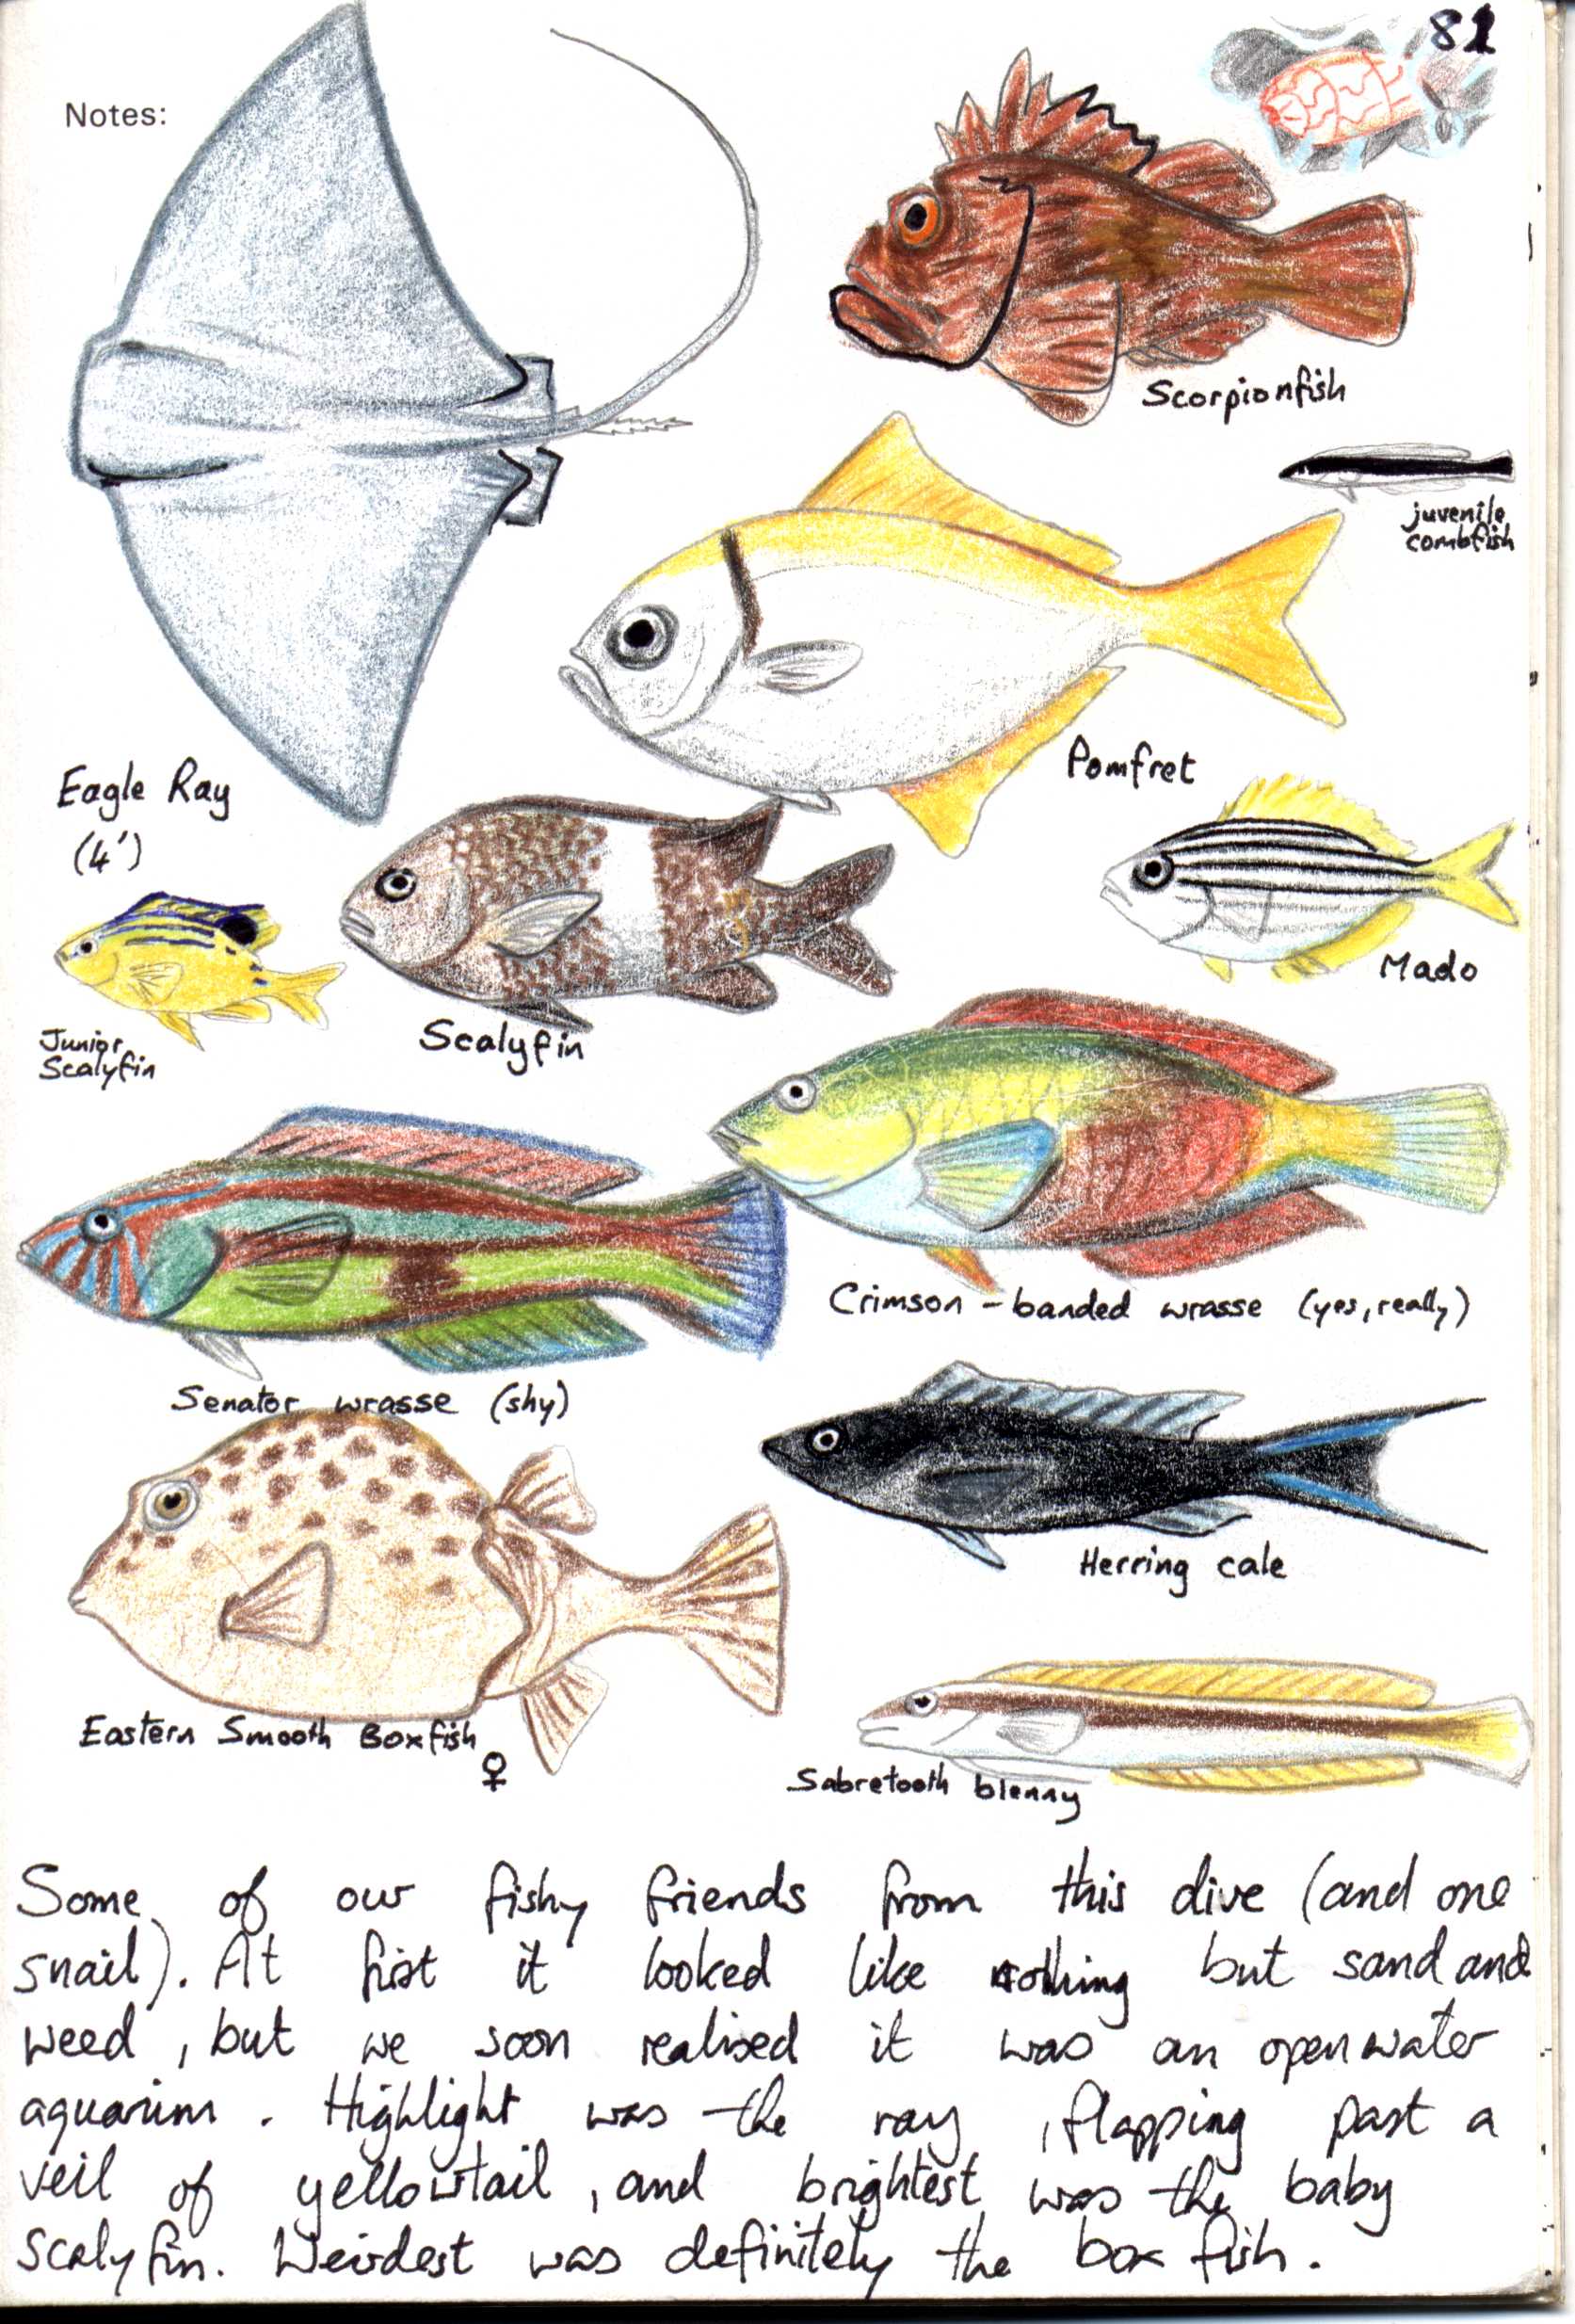 81
Notes:
Scorpionfish
juvenile
combfish
Pomfret
Eagle Ray
(4')
Mado
Junior
Scalyfin
Scalyfin
Crimson-banded wrasse (yes, really)
Senator wrasse (shy)
Herring cale
Eastern Smooth Boxfish
♀
Sabretooth blenny
Some of our fishy friends from this dive (and one
snail). At first it looked like nothing but sand and
weed, but we soon realised it was an open water
aquarium. Highlight was the ray, flapping past a
veil of yellowtail, and brightest was the baby
scalyfin. Weirdest was definitely the box fish.